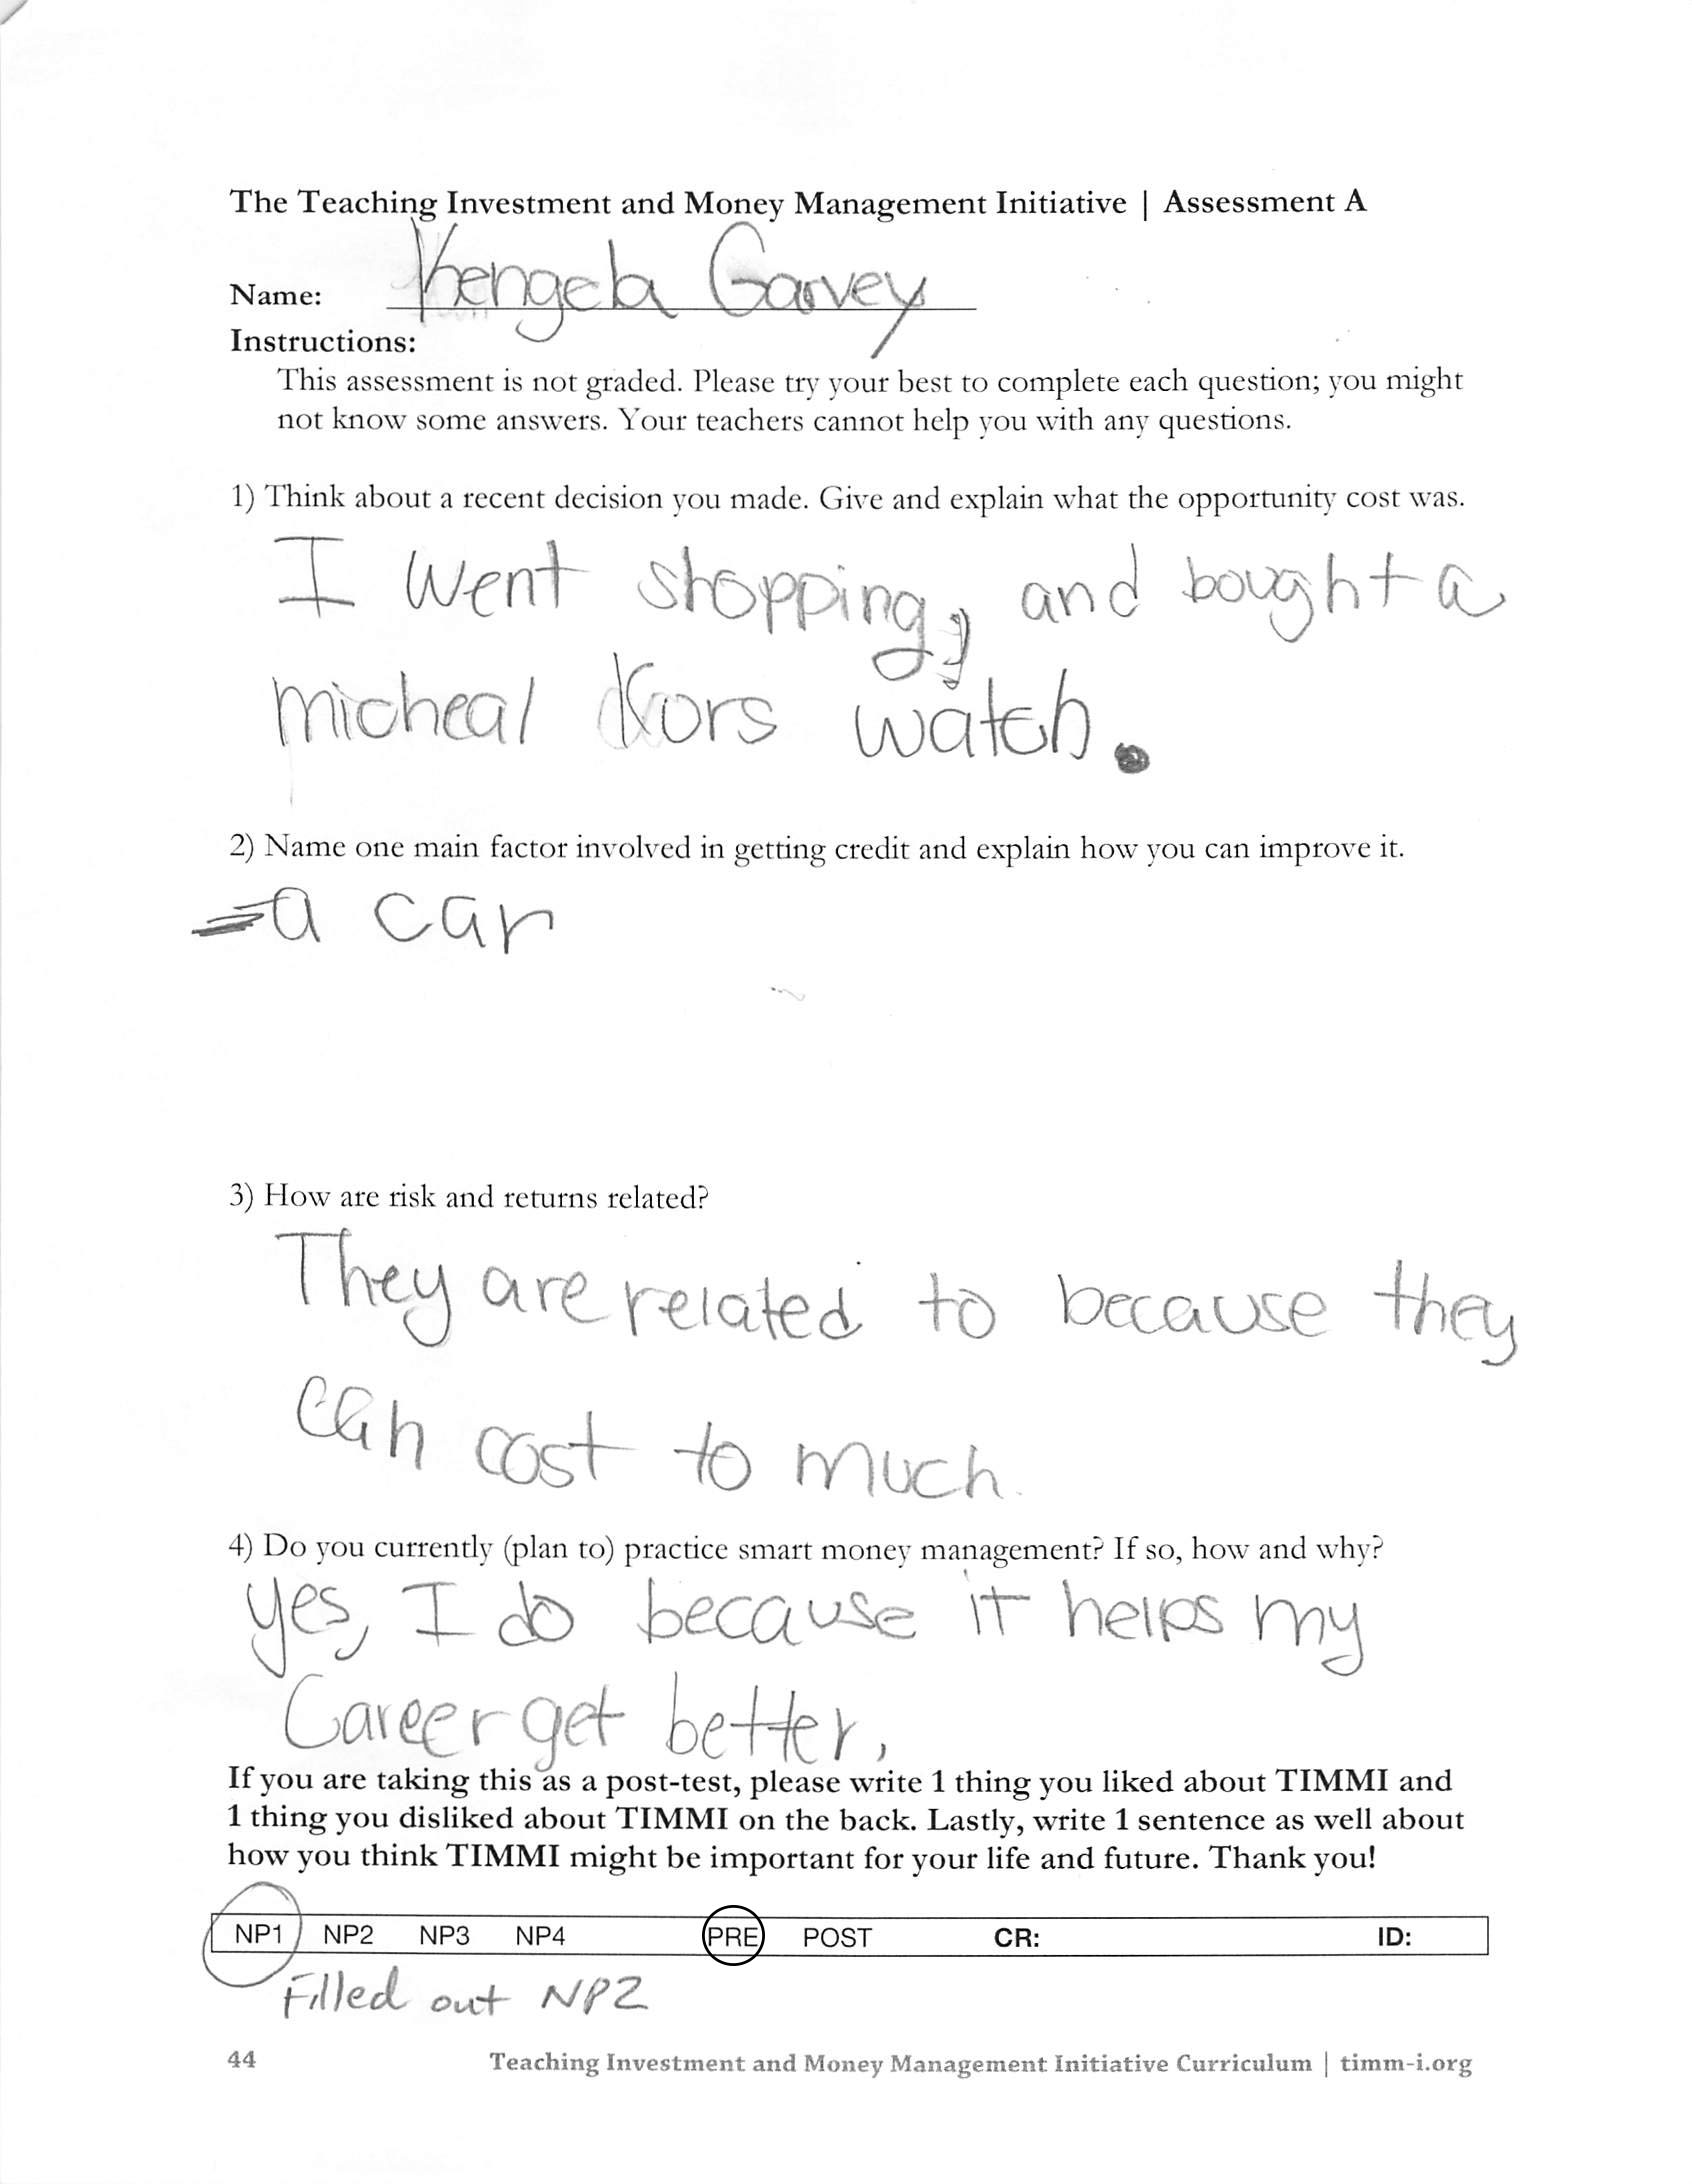 The Teaching Investment and Money Management Initiative | Assessment A
Name: Khengela Garvey
Instructions:
This assessment is not graded. Please try your best to complete each question; you might
not know some answers. Your teachers cannot help you with any questions.
1) Think about a recent decision you made. Give and explain what the opportunity cost was.
I went shopping, and bought a
micheal Kors watch.
2) Name one main factor involved in getting credit and explain how you can improve it.
a car
3) How are risk and returns related?
They are related to because they
can cost to much.
4) Do you currently (plan to) practice smart money management? If so, how and why?
yes, I do because it helps my
Career get better.
If you are taking this as a post-test, please write 1 thing you liked about TIMMI and
1 thing you disliked about TIMMI on the back. Lastly, write 1 sentence as well about
how you think TIMMI might be important for your life and future. Thank you!
NP1 NP2 NP3 NP4 PRE POST CR: ID:
Filled out NP2
44 Teaching Investment and Money Management Initiative Curriculum | timm-i.org